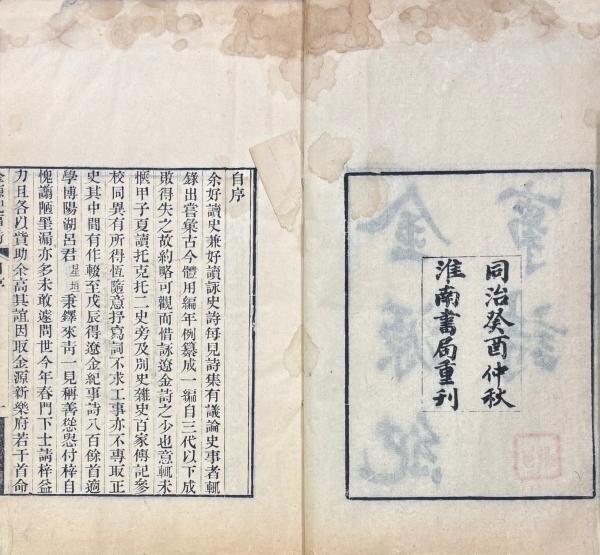 同治癸酉仲秋
淮南書局重刊
自序
余好讀史兼好讀詠史詩每見詩集有議論史事者輒
錄出嘗彙古今體用編年例纂成一編自三代以下成
敗得失之故約略可觀而惜詠遼金詩之少也意輒未
愜甲子夏讀托克托二史旁及別史雜史百家傳記參
校同異有所得恆隨意抒寫詞不求工事亦不專取正
史其中間有作輟至戊辰得遼金紀事詩八百餘首適
學博陽湖呂君星垣秉鐸來青一見稱善慫恿付梓自
愧謭陋罣漏亦多未敢遽問世今年春門下士請梓益
力且各以貲助余高其誼因取金源新樂府若干首命